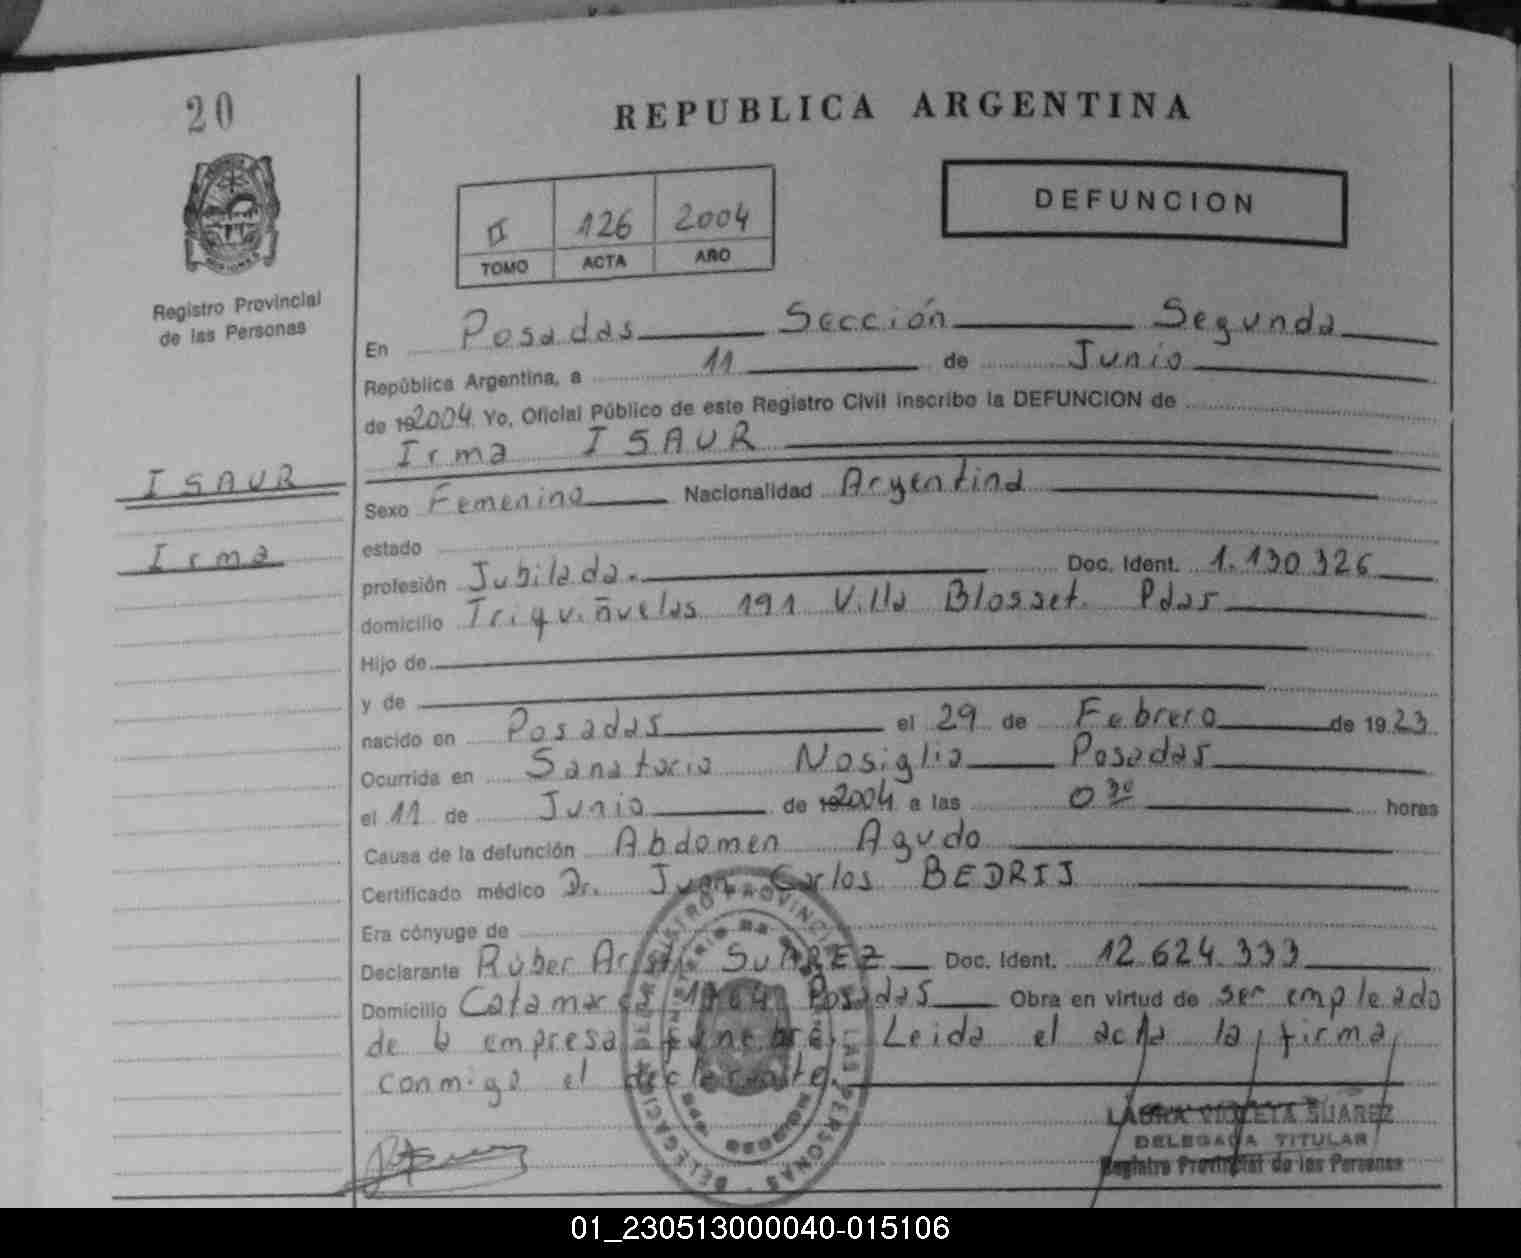 20
REPUBLICA ARGENTINA
DEFUNCION
II 126 2004
TOMO ACTA AÑO
Registro Provincial
de las Personas
En Posadas Sección Segunda
República Argentina, a 11 de Junio
de 192004. Yo, Oficial Público de este Registro Civil inscribo la DEFUNCION de
Irma ISAUR
ISAUR
Irma
Sexo Femenino Nacionalidad Argentina
estado
profesión Jubilada. Doc. Ident. 1.130.326
domicilio Triquiñuelas 191 Villa Blosset. Pdas
Hijo de
y de
nacido en Posadas el 29 de Febrero de 1923
Ocurrida en Sanatorio Nosiglia Posadas
el 11 de Junio de 192004 a las 0 30 horas
Causa de la defunción Abdomen Agudo
Certificado médico Dr. Juan Carlos BEDRIJ
Era cónyuge de
Declarante Rúber SUAREZ Doc. Ident. 12.624.333
Domicilio Posadas Obra en virtud de ser empleado
de la empresa fúnebre. Leida el acta la firma
conmigo el declarante
LAURA VIOLETA SUAREZ
DELEGADA TITULAR
Registro Provincial de las Personas
01_230513000040-015106